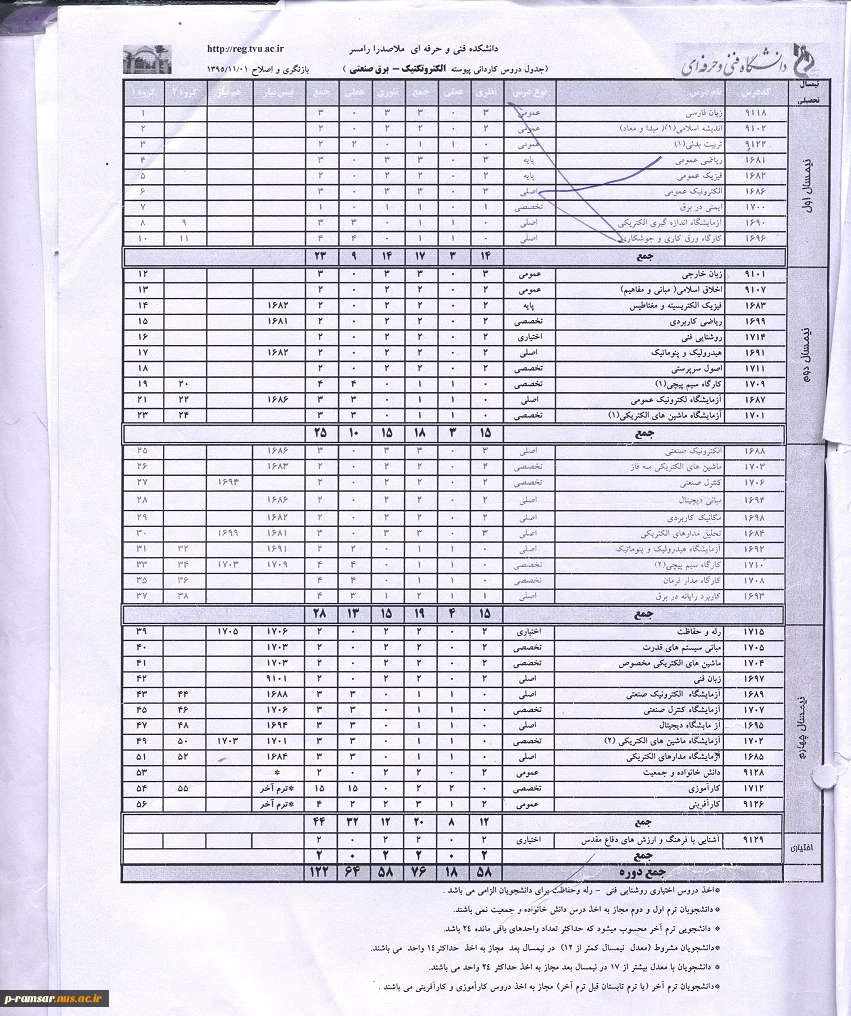 دانشگاه فنی و حرفه‌ای
دانشکده فنی و حرفه ای ملاصدرا رامسر
http://reg.tvu.ac.ir
(جدول دروس کاردانی پیوسته الکتروتکنیک – برق صنعتی )
بازنگری و اصلاح ۱۳۹۵/۱۱/۰۱
نیمسال تحصیلی کددرس نام درس نوع درس نظری عملی جمع تئوری عملی جمع پیش نیاز هم نیاز گروه۲ گروه۱
نیمسال اول
۹۱۱۸ زبان فارسی عمومی ۳ ۰ ۳ ۳ ۰ ۳ ۱
۹۱۰۲ اندیشه اسلامی(۱)( مبدا و معاد) عمومی ۲ ۰ ۲ ۲ ۰ ۲ ۲
۹۱۲۲ تربیت بدنی(۱) عمومی ۰ ۱ ۱ ۰ ۲ ۲ ۳
۱۶۸۱ ریاضی عمومی پایه ۳ ۰ ۳ ۳ ۰ ۳ ۴
۱۶۸۲ فیزیک عمومی پایه ۲ ۰ ۲ ۲ ۰ ۲ ۵
۱۶۸۶ الکترونیک عمومی اصلی ۳ ۰ ۳ ۳ ۰ ۳ ۶
۱۷۰۰ ایمنی در برق تخصصی ۱ ۰ ۱ ۱ ۰ ۱ ۷
۱۶۹۰ آزمایشگاه اندازه گیری الکتریکی اصلی ۰ ۱ ۱ ۰ ۳ ۳ ۹ ۸
۱۶۹۶ کارگاه ورق کاری و جوشکاری اصلی ۰ ۱ ۱ ۰ ۴ ۴ ۱۱ ۱۰
جمع ۱۴ ۳ ۱۷ ۱۴ ۹ ۲۳
نیمسال دوم
۹۱۰۱ زبان خارجی عمومی ۳ ۰ ۳ ۳ ۰ ۳ ۱۲
۹۱۰۷ اخلاق اسلامی( مبانی و مفاهیم) عمومی ۲ ۰ ۲ ۲ ۰ ۲ ۱۳
۱۶۸۳ فیزیک الکتریسیته و مغناطیس پایه ۲ ۰ ۲ ۲ ۰ ۲ ۱۶۸۲ ۱۴
۱۶۹۹ ریاضی کاربردی تخصصی ۲ ۰ ۲ ۲ ۰ ۲ ۱۶۸۱ ۱۵
۱۷۱۴ روشنایی فنی اختیاری ۲ ۰ ۲ ۲ ۰ ۲ ۱۶
۱۶۹۱ هیدرولیک و پنوماتیک اصلی ۲ ۰ ۲ ۲ ۰ ۲ ۱۶۸۲ ۱۷
۱۷۱۱ اصول سرپرستی تخصصی ۲ ۰ ۲ ۲ ۰ ۲ ۱۸
۱۷۰۹ کارگاه سیم پیچی(۱) تخصصی ۰ ۱ ۱ ۰ ۴ ۴ ۲۰ ۱۹
۱۶۸۷ آزمایشگاه لکترونیک عمومی اصلی ۰ ۱ ۱ ۰ ۳ ۳ ۱۶۸۶ ۲۲ ۲۱
۱۷۰۱ آزمایشگاه ماشین های الکتریکی(۱) تخصصی ۰ ۱ ۱ ۰ ۳ ۳ ۲۴ ۲۳
جمع ۱۵ ۳ ۱۸ ۱۵ ۱۰ ۲۵
۱۶۸۸ الکترونیک صنعتی اصلی ۳ ۰ ۳ ۳ ۰ ۳ ۱۶۸۶ ۲۵
۱۷۰۳ ماشین های الکتریکی سه فاز تخصصی ۲ ۰ ۲ ۲ ۰ ۲ ۱۶۸۳ ۲۶
۱۷۰۶ کنترل صنعتی تخصصی ۲ ۰ ۲ ۲ ۰ ۲ ۱۶۹۴ ۲۷
۱۶۹۴ مبانی دیجیتال اصلی ۲ ۰ ۲ ۲ ۰ ۲ ۱۶۸۶ ۲۸
۱۶۹۸ مکانیک کاربردی اصلی ۲ ۰ ۲ ۲ ۰ ۲ ۱۶۸۲ ۲۹
۱۶۸۴ تحلیل مدارهای الکتریکی اصلی ۳ ۰ ۳ ۳ ۰ ۳ ۱۶۸۱ ۱۶۹۹ ۳۰
۱۶۹۲ آزمایشگاه هیدرولیک و پنوماتیک اصلی ۰ ۱ ۱ ۰ ۲ ۲ ۱۶۹۱ ۳۲ ۳۱
۱۷۱۰ کارگاه سیم پیچی(۲) تخصصی ۰ ۱ ۱ ۰ ۴ ۴ ۱۷۰۹ ۱۷۰۳ ۳۴ ۳۳
۱۷۰۸ کارگاه مدار فرمان تخصصی ۰ ۱ ۱ ۰ ۴ ۴ ۳۶ ۳۵
۱۶۹۳ کاربرد رایانه در برق اصلی ۱ ۱ ۲ ۱ ۳ ۴ ۳۸ ۳۷
جمع ۱۵ ۴ ۱۹ ۱۵ ۱۳ ۲۸
نیمسال چهارم
۱۷۱۵ رله و حفاظت اختیاری ۲ ۰ ۲ ۲ ۰ ۲ ۱۷۰۶ ۱۷۰۵ ۳۹
۱۷۰۵ مبانی سیستم های قدرت تخصصی ۲ ۰ ۲ ۲ ۰ ۲ ۱۷۰۳ ۴۰
۱۷۰۴ ماشین های الکتریکی مخصوص تخصصی ۲ ۰ ۲ ۲ ۰ ۲ ۱۷۰۳ ۴۱
۱۶۹۷ زبان فنی اصلی ۲ ۰ ۲ ۲ ۰ ۲ ۹۱۰۱ ۴۲
۱۶۸۹ آزمایشگاه الکترونیک صنعتی اصلی ۰ ۱ ۱ ۰ ۳ ۳ ۱۶۸۸ ۴۴ ۴۳
۱۷۰۷ آزمایشگاه کنترل صنعتی تخصصی ۰ ۱ ۱ ۰ ۳ ۳ ۱۷۰۶ ۴۶ ۴۵
۱۶۹۵ از مایشگاه دیجیتال اصلی ۰ ۱ ۱ ۰ ۳ ۳ ۱۶۹۴ ۴۸ ۴۷
۱۷۰۲ آزمایشگاه ماشین های الکتریکی (۲) تخصصی ۰ ۱ ۱ ۰ ۳ ۳ ۱۷۰۱ ۱۷۰۳ ۵۰ ۴۹
۱۶۸۵ آزمایشگاه مدارهای الکتریکی اصلی ۰ ۱ ۱ ۰ ۳ ۳ ۱۶۸۴ ۵۲ ۵۱
۹۱۲۸ دانش خانواده و جمعیت عمومی ۲ ۰ ۲ ۲ ۰ ۲ * ۵۳
۱۷۱۲ کارآموزی تخصصی ۰ ۲ ۲ ۰ ۱۵ ۱۵ *ترم آخر ۵۵ ۵۴
۹۱۲۶ کارآفرینی عمومی ۲ ۱ ۳ ۲ ۲ ۴ *ترم آخر ۵۶
جمع ۱۲ ۸ ۲۰ ۱۲ ۳۲ ۴۴
اختیاری ۹۱۲۹ آشنایی با فرهنگ و ارزش های دفاع مقدس اختیاری ۲ ۰ ۲ ۲ ۰ ۲
جمع ۲ ۰ ۲ ۲ ۰ ۲
جمع دوره ۵۸ ۱۸ ۷۶ ۵۸ ۶۴ ۱۲۲
*اخذ دروس اختیاری روشنایی فنی - رله وحفاظت برای دانشجویان الزامی می باشد .
*دانشجویان ترم اول و دوم مجاز به اخذ درس دانش خانواده و جمعیت نمی باشند.
*دانشجویی ترم آخر محسوب میشود که حداکثر تعداد واحدهای باقی مانده ۲۴ باشد.
*دانشجویان مشروط (معدل نیمسال کمتر از ۱۲) در نیمسال بعد مجاز به اخذ حداکثر۱۴ واحد می باشند.
*دانشجویان با معدل بیشتر از ۱۷ در نیمسال بعد مجاز به اخذ حداکثر ۲۴ واحد می باشند.
*دانشجویان ترم آخر (یا ترم تابستان قبل ترم آخر) مجاز به اخذ دروس کارآموزی و کارآفرینی می باشند .
p-ramsar.nus.ac.ir